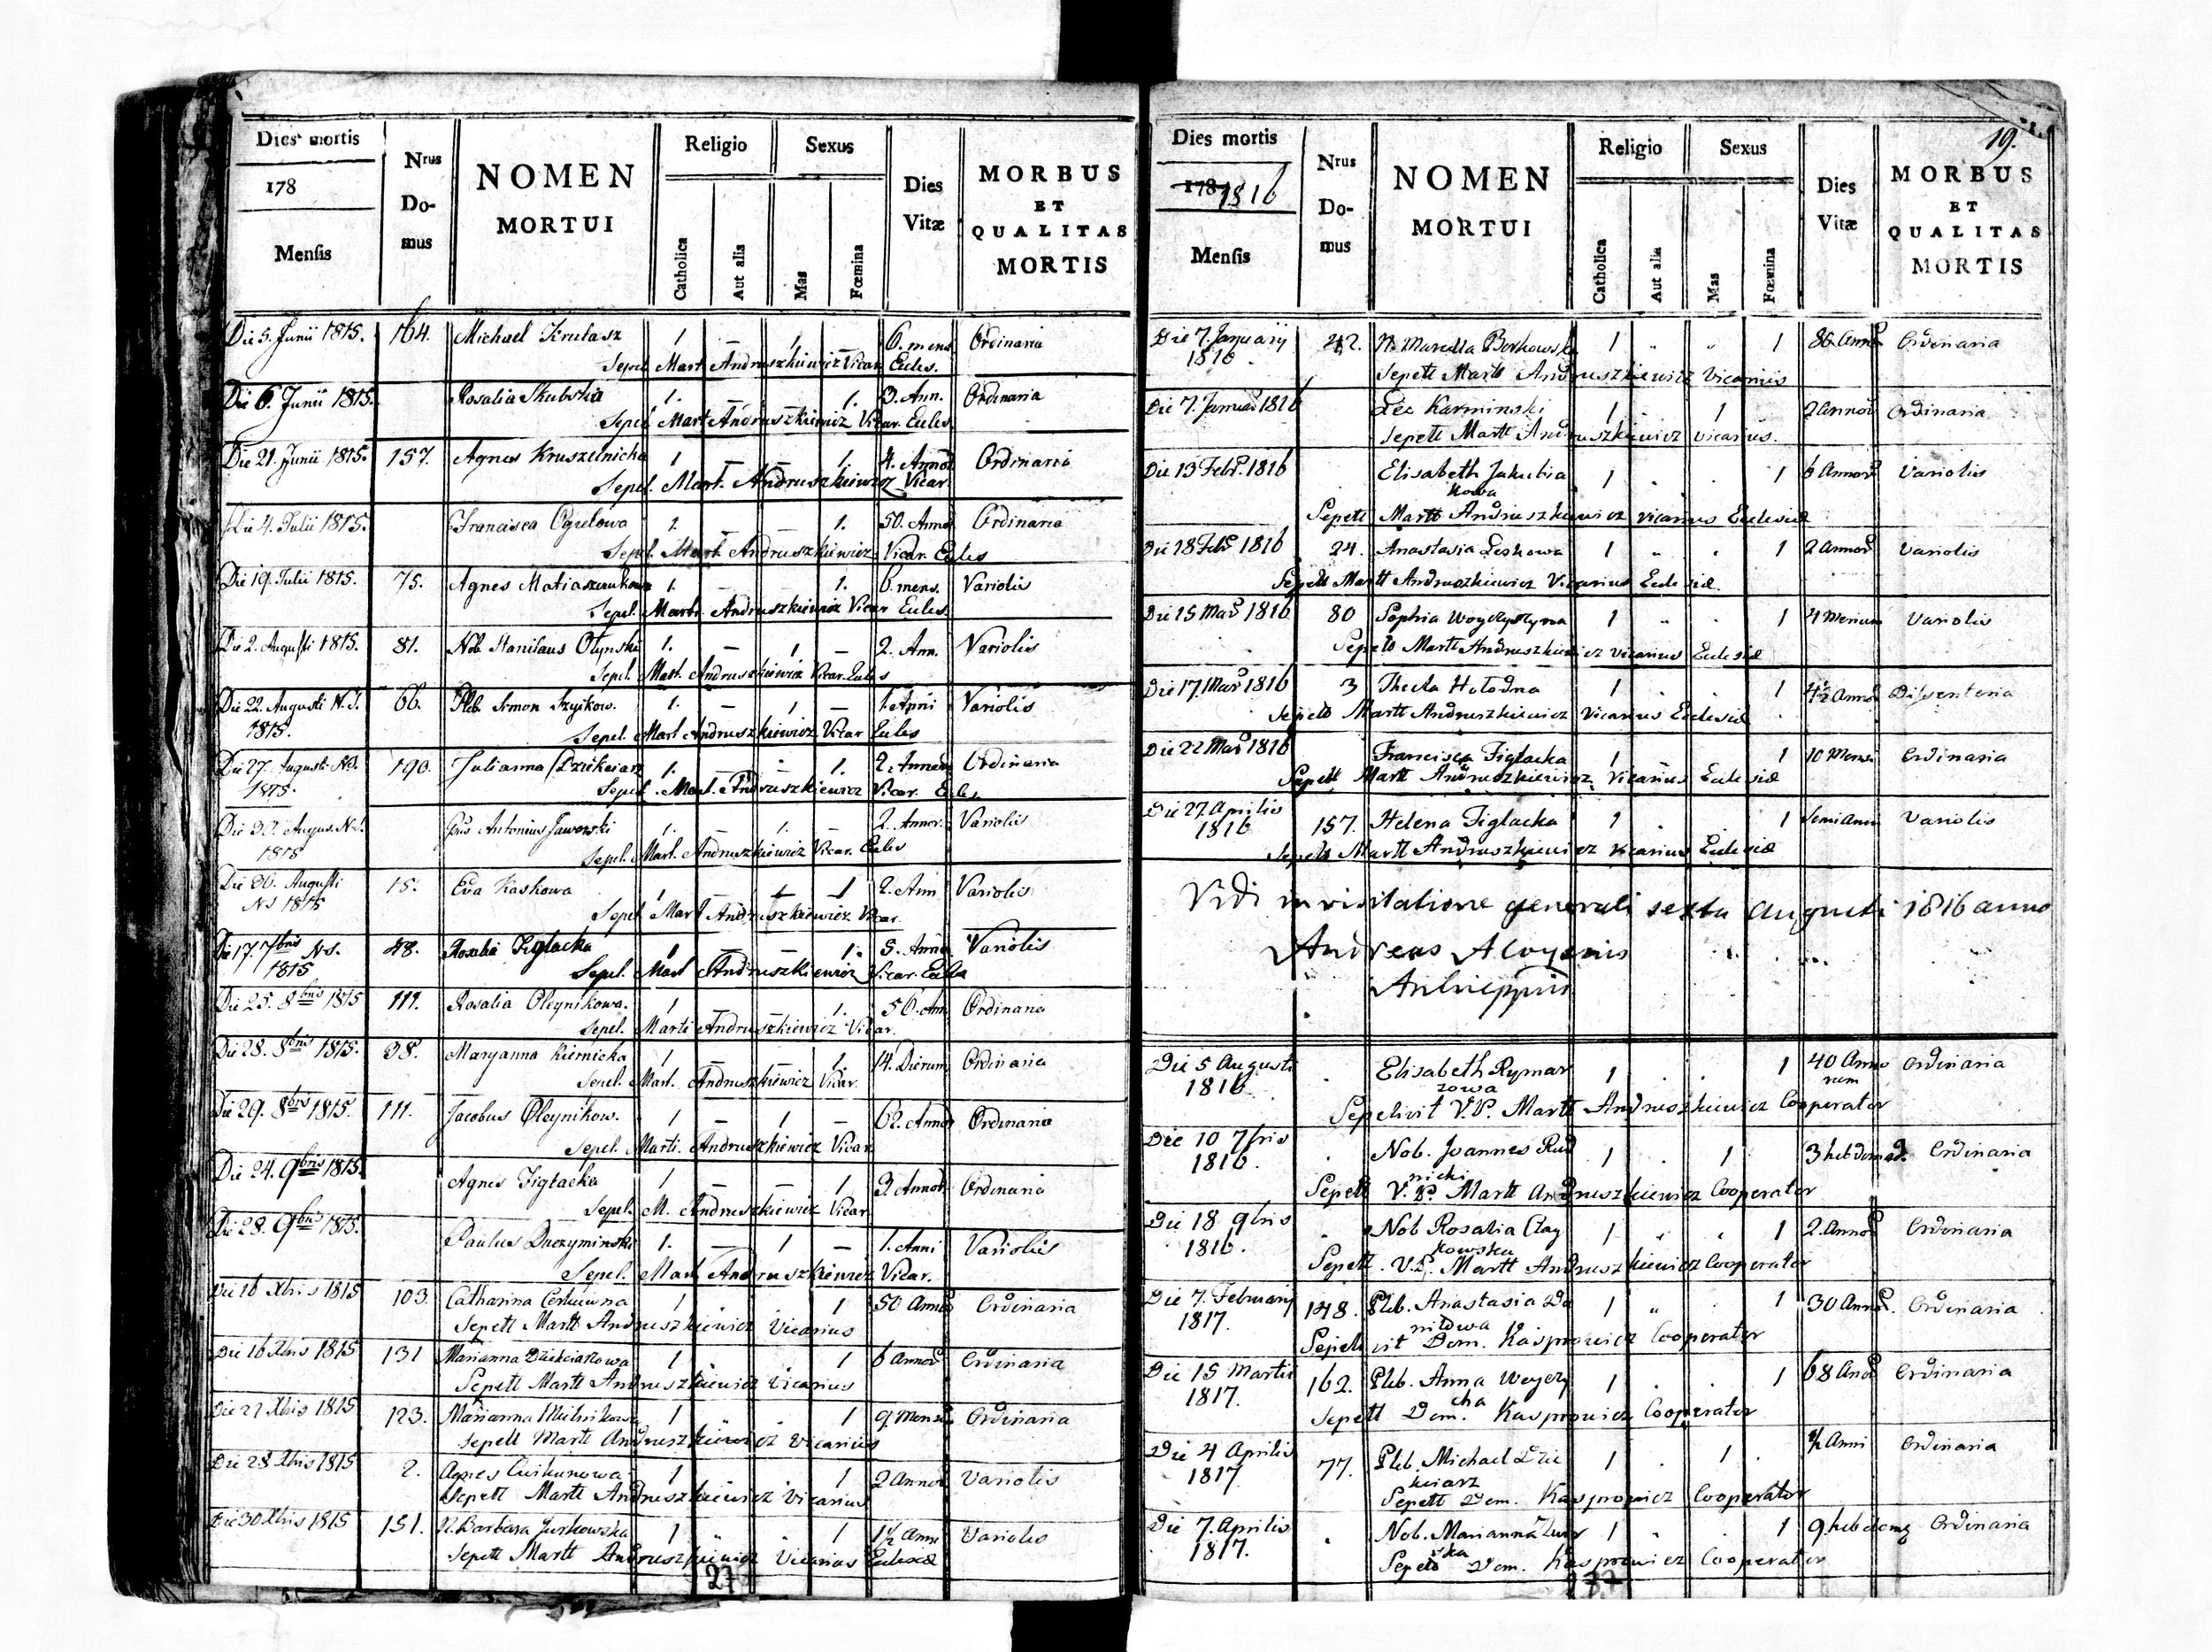 Dies mortis
178
Mensis
Nrus
Do-
mus
NOMEN
MORTUI
Religio
Catholica
Aut alia
Sexus
Mas
Fœmina
Dies
Vitæ
MORBUS
ET
QUALITAS
MORTIS
Die 5. Junii 1815. 164. Michael Krutasz 1. — 1. — 6. mens. Ordinaria
Sepel. Mart. Andruszkiewicz Vicar. Eccles.
Die 6. Junii 1815. Rosalia Skubska 1. — — 1. 3. Ann. Ordinaria
Sepel. Mart. Andruszkiewicz Vicar. Eccles.
Die 21. Junii 1815. 157. Agnes Kruszelnicka 1 — — 1. 4. Annor. Ordinaria
Sepel. Mart. Andruszkiewicz Vicar.
Die 4. Julii 1815. Francisca Ogrelowa 1. — — 1. 50. Anno Ordinaria
Sepel. Mart. Andruszkiewicz Vicar. Eccles
Die 19. Julii 1815. 75. Agnes 1. — 1. 6. mens. Variolis
Sepel. Marti. Andruszkiewicz Vicar Eccles.
Die 2. Augusti 1815. 81. Nob. Stanislaus Olynski 1. — 1 — 2. Ann. Variolis
Sepel. Mart. Andruszkiewicz Vicar. Eccles
Die 22. Augusti N.S. 66. Pleb. Simon Szyikow. 1. — 1 — 1. Anni Variolis
1815.
Sepel. Mart Andruszkiewicz Vicar Eccles
Die 27. Augusti N.S. 190. Julianna Dziekciarz 1. — 1. 2. Annor Ordinaria
1815.
Sepel. Mart. Andruszkiewicz Vicar. Eccles.
Die 30. Augus. N.S. Antonius Jaworski 1. — 1. — 2. Annor. Variolis
1815
Sepel. Mart. Andruszkiewicz Vicar. Eccles
Die 30. Augusti 15. Eva Kaskowa 1 1 2. Ann Variolis
NS 1815
Sepel Mart Andruszkiewicz Vicar.
Die 17. 7bris N.S. 48. Rosalia Figlacka 1 — — 1. 5. Anno Variolis
1815
Sepel. Mart Andruszkiewicz Vicar. Eccles
Die 25. 8bris 1815 111. Rosalia Oleynikowa. 1 — 1. 56. Ann Ordinaria
Sepel. Marti Andruszkiewicz Vicar.
Die 28. 8bris 1815. 38. Maryanna Kiernicka 1 — — 1. 14. Dierum Ordinaria
Sepel. Mart. Andruszkiewicz Vicar.
Die 29. 8bris 1815. 111. Jacobus Oleynikow. 1 — 1 — 62. Anno Ordinaria
Sepel. Marti. Andruszkiewicz Vicar
Die 24. 9bris 1815. Agnes Figlacka 1 — — 1 3. Annor. Ordinaria
Sepel. M. Andruszkiewicz Vicar
Die 28. 9bris 1815. Paulus 1. — 1 — 1. Anni Variolis
Sepel. Mart Andruszkiewicz Vicar.
Die 16 Xbris 1815 103. Catharina 1 1 50 Anno Ordinaria
Sepelt Martt Andruszkiewicz Vicarius
Die 16 Xbris 1815 131 Marianna Dziekciarzowa 1 " . 1 6 Annor Ordinaria
Sepelt Martt Andruszkiewicz Vicarius
Die 21 Xbris 1815 123. Marianna Mielnikowa 1 " . 1 9 Mens Ordinaria
Sepelt Martt Andruszkiewicz Vicarius
Die 28 Xbris 1815 2. Agnes 1 " 1 2 Annor Variolis
Sepelt Martt Andruszkiewicz Vicarius
Die 30 Xbris 1815 151. N. Barbara Jurkowska 1 " . 1 1½ Anni Variolis
Sepelt Martt Andruszkiewicz Vicarius Ecclesiæ
Dies mortis
178 1816
Mensis
Nrus
Do-
mus
NOMEN
MORTUI
Religio
Catholica
Aut alia
Sexus
Mas
Fœmina
Dies
Vitæ
19.
MORBUS
ET
QUALITAS
MORTIS
Die 7. Januarij 42. N. Marcella Borkowska 1 " " 1 86 Anno Ordinaria
1816
Sepelt Martt Andruszkiewicz Vicarius
Die 7. Januar 1816 Lec Karminski 1 . 1 . 2 Annor Ordinaria
Sepelt Martt Andruszkiewicz Vicarius.
Die 13 Febr. 1816 Elisabeth Jakubia 1 . . 1 6 Annor Variolis
kowa
Sepelt Martt Andruszkiewicz Vicarius Ecclesiæ
Die 18 Feb 1816 24. Anastasia Leskowa 1 " . 1 2 Annor Variolis
Sepelt Martt Andruszkiewicz Vicarius Ecclesiæ.
Die 15 Mar 1816 80 Sophia 1 " . 1 4 Mensium Variolis
Sepelt Martt Andruszkiewicz Vicarius Ecclesiæ
Die 17. Mar 1816 3 Thecla Hołodna 1 . . 1 4½ Anno Dissenteria
Sepelt Martt Andruszkiewicz Vicarius Ecclesiæ
Die 22 Mar 1816 Francisca Figlacka 1 1 10 Mens Ordinaria
Sepelt Martt Andruszkiewicz Vicarius Ecclesiæ
Die 27. Aprilis 157. Helena Figlacka 1 . 1 Semi Anni Variolis
1816
Sepelt Martt Andruszkiewicz Vicarius Ecclesiæ
Vidi in visitatione generali sexta Augusti 1816 anno
Andreas Aloysius
Ankwicz
Die 5 Augusti Elisabeth Rymar 1 . . 1 40 Anno Ordinaria
1816. zowa rum
Sepelivit V.P. Martt Andruszkiewicz Cooperator
Die 10 7bris Nob. Joannes Rud 1 . 1 3 hebdomad. Ordinaria
1816. nicki
Sepelt V.P. Martt Andruszkiewicz Cooperator
Die 18 9bris Nob Rosalia Czay 1 " " 1 2. Annor Ordinaria
1816. kowska
Sepelt. V.P. Martt Andruszkiewicz Cooperator
Die 7. Februarij 148. Pleb. Anastasia Da 1 " . 1 30 Annor. Ordinaria
1817. niłowa
Sepelivit Dom. Kasprowicz Cooperator
Die 15 Martii 162. Pleb. Anna Woyezy 1 . . 1 68 Anor Ordinaria
1817. cha
Sepelt Dom. Kasprowicz Cooperator
Die 4 Aprilis 77. Pleb. Michael Dzie 1 . 1 . ½ Anni Ordinaria
1817 kciarz
Sepelt Dom. Kasprowicz Cooperator
Die 7. Aprilis Nob. Marianna 1 . . 1 9 hebdomg Ordinaria
1817. ska
Sepelt Dom. Kasprowicz Cooperator